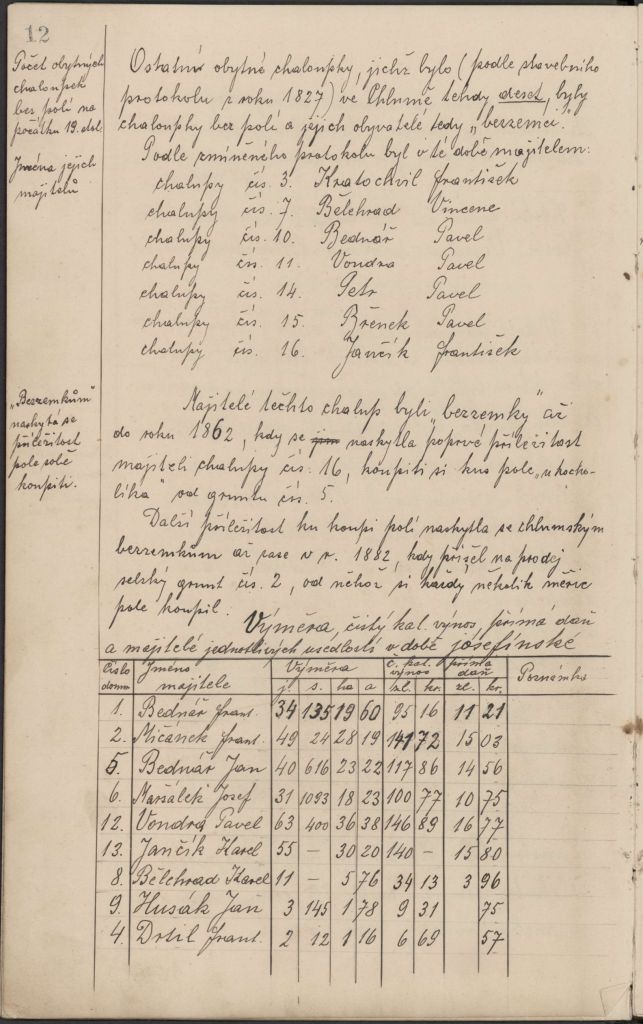 12
Počet obytných
chaloupek
bez polí na
počátku 19. stol.
Jména jejich
majitelů
Ostatní obytné chaloupky, jichž bylo (podle stavebního
protokolu z roku 1827) ve Chlumě tehdy deset, byly
chaloupky bez polí a jejich obyvatelé tedy „bezzemci".
Podle zmíněného protokolu byl v té době majitelem:
chalupy čís. 3. Kratochvil František
chalupy čís. 7. Bělehrad Vincenc
chalupy čís. 10. Bednář Pavel
chalupy čís. 11. Vondra Pavel
chalupy čís. 14. Petr Pavel
chalupy čís. 15. Břenek Pavel
chalupy čís. 16. Jančík František
„Bezzemkům"
naskytá se
příležitost
pole sobě
koupiti.
Majitelé těchto chalup byli „bezzemky" až
do roku 1862, kdy se naskytla poprvé příležitost
majiteli chalupy čís. 16, koupiti si kus pole „u kocho-
líka" od gruntu čís. 5.
Další příležitost ku koupi polí naskytla se chlumským
bezzemkům až zase v r. 1882, kdy přišel na prodej
selský grunt čís. 2, od něhož si každý několik měřic
pole koupil.
Výměra, čistý kat. výnos, přímá daň
a majitelé jednotlivých usedlostí v době josefínské
Číslo domu Jméno majitele Výměra č. kat. výnos přímá daň Poznámka
j. s. ha a zl. kr. zl. kr.
1. Bednář Frant. 34 135 19 60 95 16 11 21
2. Mičánek Frant. 49 24 28 19 141 72 15 03
5. Bednář Jan 40 616 23 22 117 86 14 56
6. Maršálek Josef 31 1093 18 23 100 77 10 75
12. Vondra Pavel 63 400 36 38 146 89 16 77
13. Jančík Karel 55 – 30 20 140 – 15 80
8. Bělehrad Karel 11 – 5 76 34 13 3 96
9. Husák Jan 3 145 1 78 9 31 75
4. Drtil Frant. 2 12 1 16 6 69 57